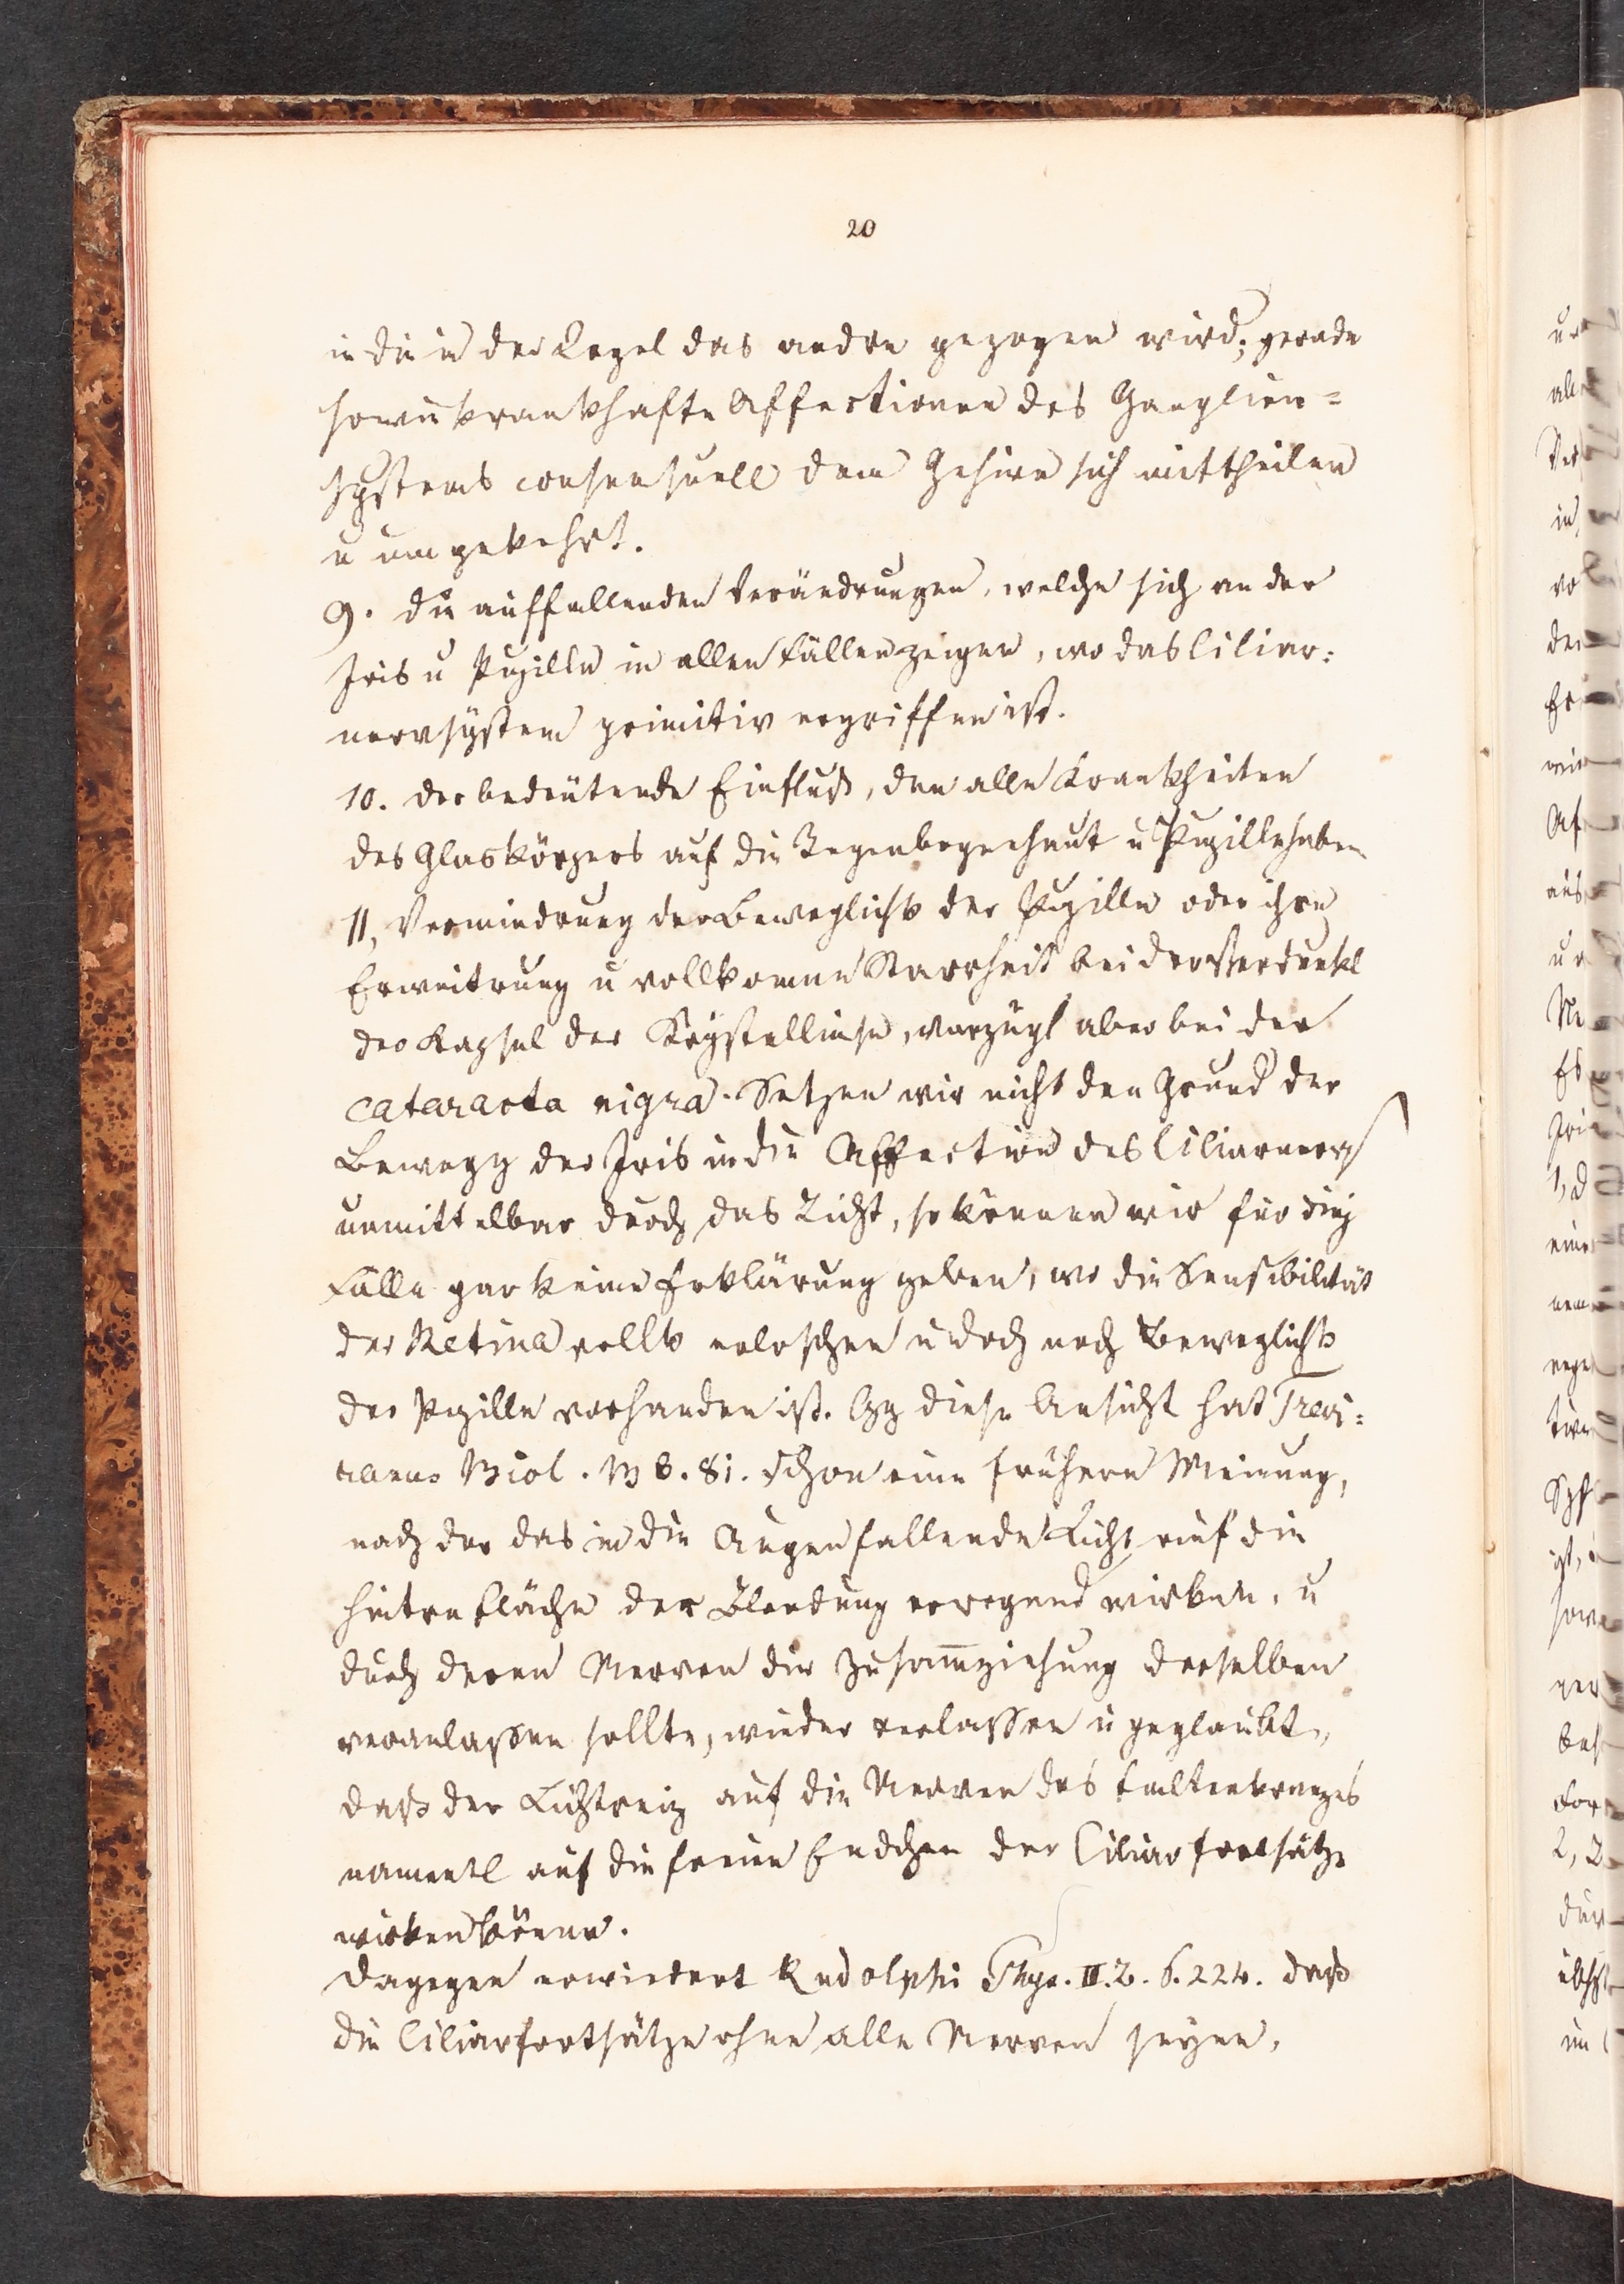 20
in die in der Regel das andre gezogen wird; gerade
sowie krankhafte Affectionen des Ganglien=
systems consensuell dem Gehirn sich mittheilen
u umgekehrt.
9. die auffallenden Verändrungen, welche sich an der
Iris u Pupille in allen Fällen zeigen, wo das Ciliar=
nervsystem primitiv ergriffen ist.
10. der bedeutende Einfluß, den alle Krankheiten
des Glaskörpers auf die Regenbogenhaut u Pupille haben
11, Vermindrung der Beweglichk der Pupille oder ihre
Erweitrung u vollkomne Starrheit bei der Verdunkl
der Kapsel der Krystallinse, vorzügl aber bei der
cataracta nigra. Setzen wir nicht den Grund der
Bewegg der Iris in die Affection des Ciliarnervs
unmittelbar durch das Licht, so können wir für die
Fälle gar keine Erklärung geben, wo die Sensibilität
der Retina vollk erloschen u doch noch Beweglichk
der Pupille vorhanden ist. Gg diese Ansicht hat Trevi=
ranus Biol. B 6. 81. schon eine frühere Meinung,
nach der das in die Augen fallende Licht auf die
hintre Fläche der Blendung erregend wirken, u
durch deren Nerven die Zusammziehung derselben
veranlassen sollte, wieder verlassen u geglaubt,
daß der Lichtreiz auf die Nerven des Faltenkranzes
namentl auf die freien Endchen der Ciliarfortsätze
wirken könne.
Dagegen erwiedert Rudolphi Phys. II. 2. S. 224. daß
die Ciliarfortsätze ohne alle Nerven seyen,